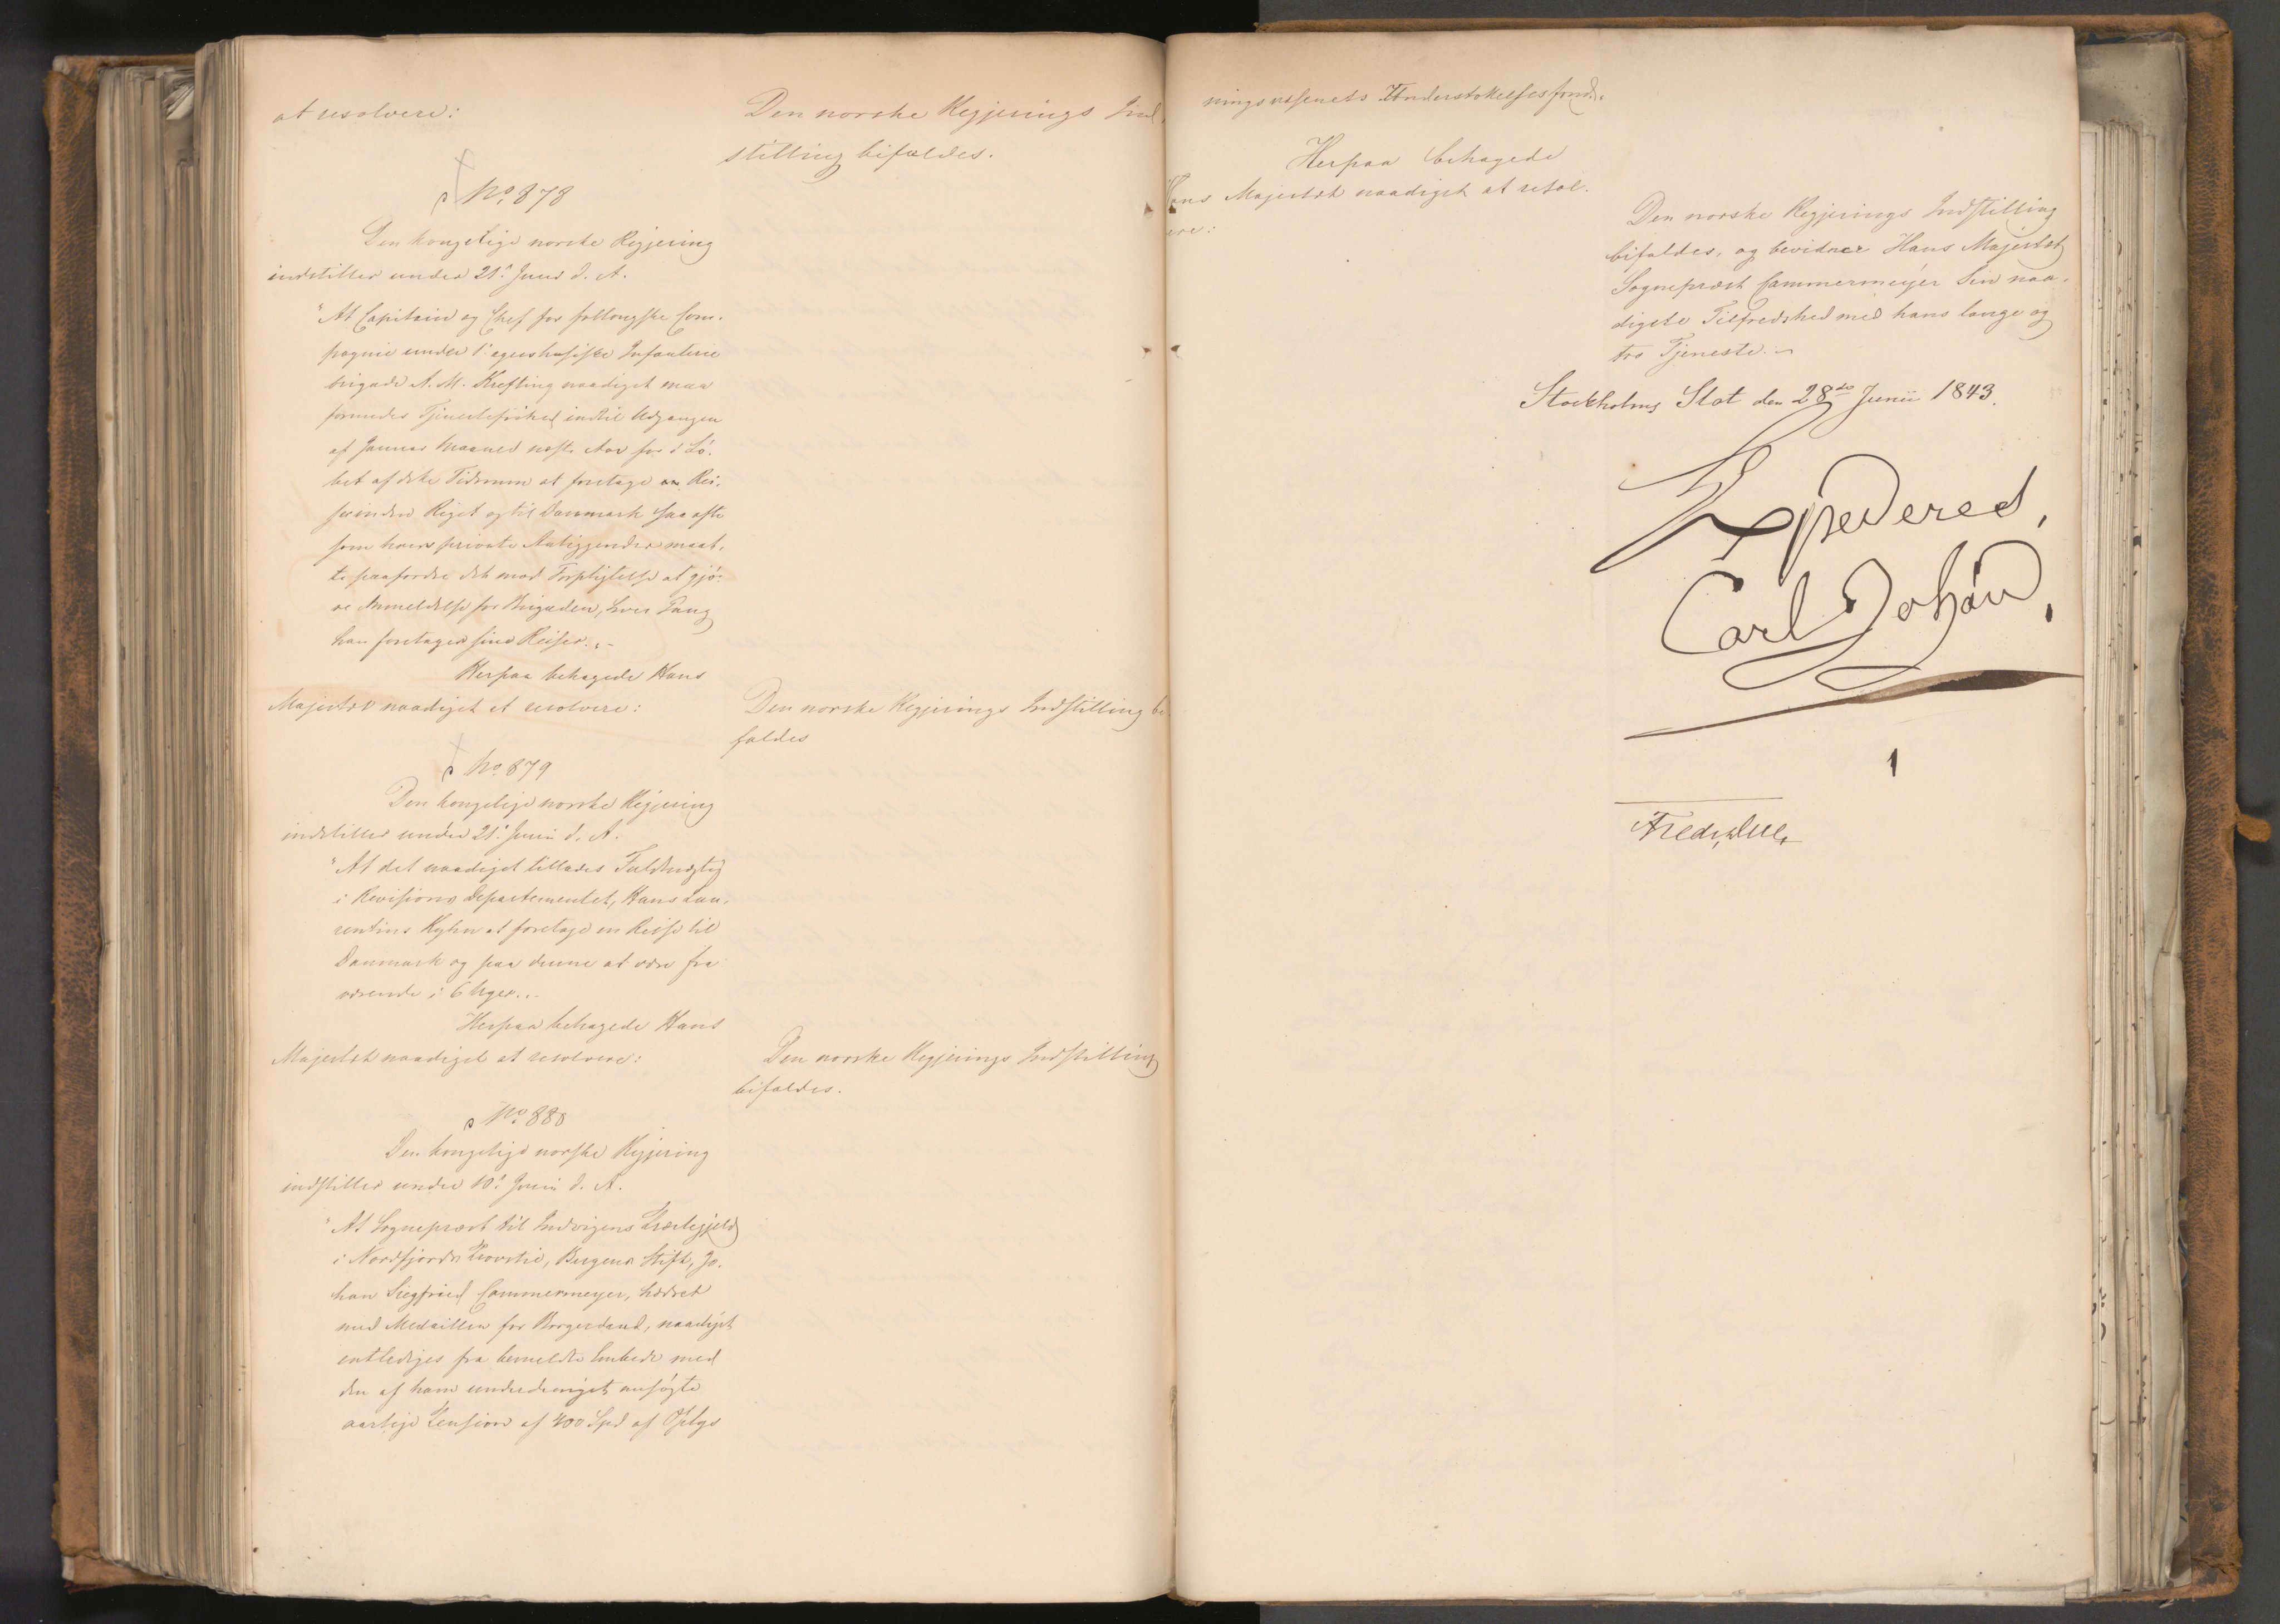 at resolvere:
Den norske Regjerings Ind
stilling bifaldes.
No. 878
Den kongelige norske Regjering
indstiller under 21. Juni d. A.
"At Capitain og Chef for follougske Com-
pagnie under 1. agershusiske Infanterie
brigade A. M. Krefting naadigst maa
forundes Tjenestefrihed indtil Udgangen
af Januar Maaned næste Aar for i Lø-
bet af dette Tidsrum at foretage Rei-
ser inden Riget og til Danmark saa ofte
som hans private Anliggender maat-
te paafordre det mod Forpligtelse at gjø-
re Anmeldelse for Brigaden, hver Gang
han foretager sine Reiser."-
Herpaa behagede Hans
Majestæt naadigst at resolvere:
Den norske Regjerings Indstilling bi
faldes
No. 879
Den kongelige norske Regjering
indstiller under 21. Juni d. A.
"At det naadigst tillades Fuldmægtig
i Revisions Departementet, Hans Lau-
rentius Kyhn at foretage en Reise til
Danmark og paa denne at være fra
værende i 6 Uger."
Herpaa behagede Hans
Majestæt naadigst at resolvere:
Den norske Regjerings Indstilling
bifaldes.
No. 880
Den kongelige norske Regjering
indstiller under 10. Juni d. A.
"At Sognepræst til Indvigens Præstegjeld
i Nordfjords Provstie, Bergens Stift, Jo-
han Siegfried Cammermeyer, hædret
med Medaillen for Borgerdaad, naadigst
entlediges fra bemeldte Embede med
den af ham underdanigst ansøgte
aarlige Pension af 400 Spd af Oplys
ningsvæsenets Understøttelsesfond.
Herpaa behagede
Hans Majestæt naadigst at resol-
vere:
Den norske Regjerings Indstilling
bifaldes, og bevidner Hans Majestæt
Sognepræst Cammermeyer Sin naa-
digste Tilfredshed med hans lange og
tro Tjeneste.
Stockholms Slot den 28de Junii 1843.
Expederes,
Carl Johan
Fredr. Due